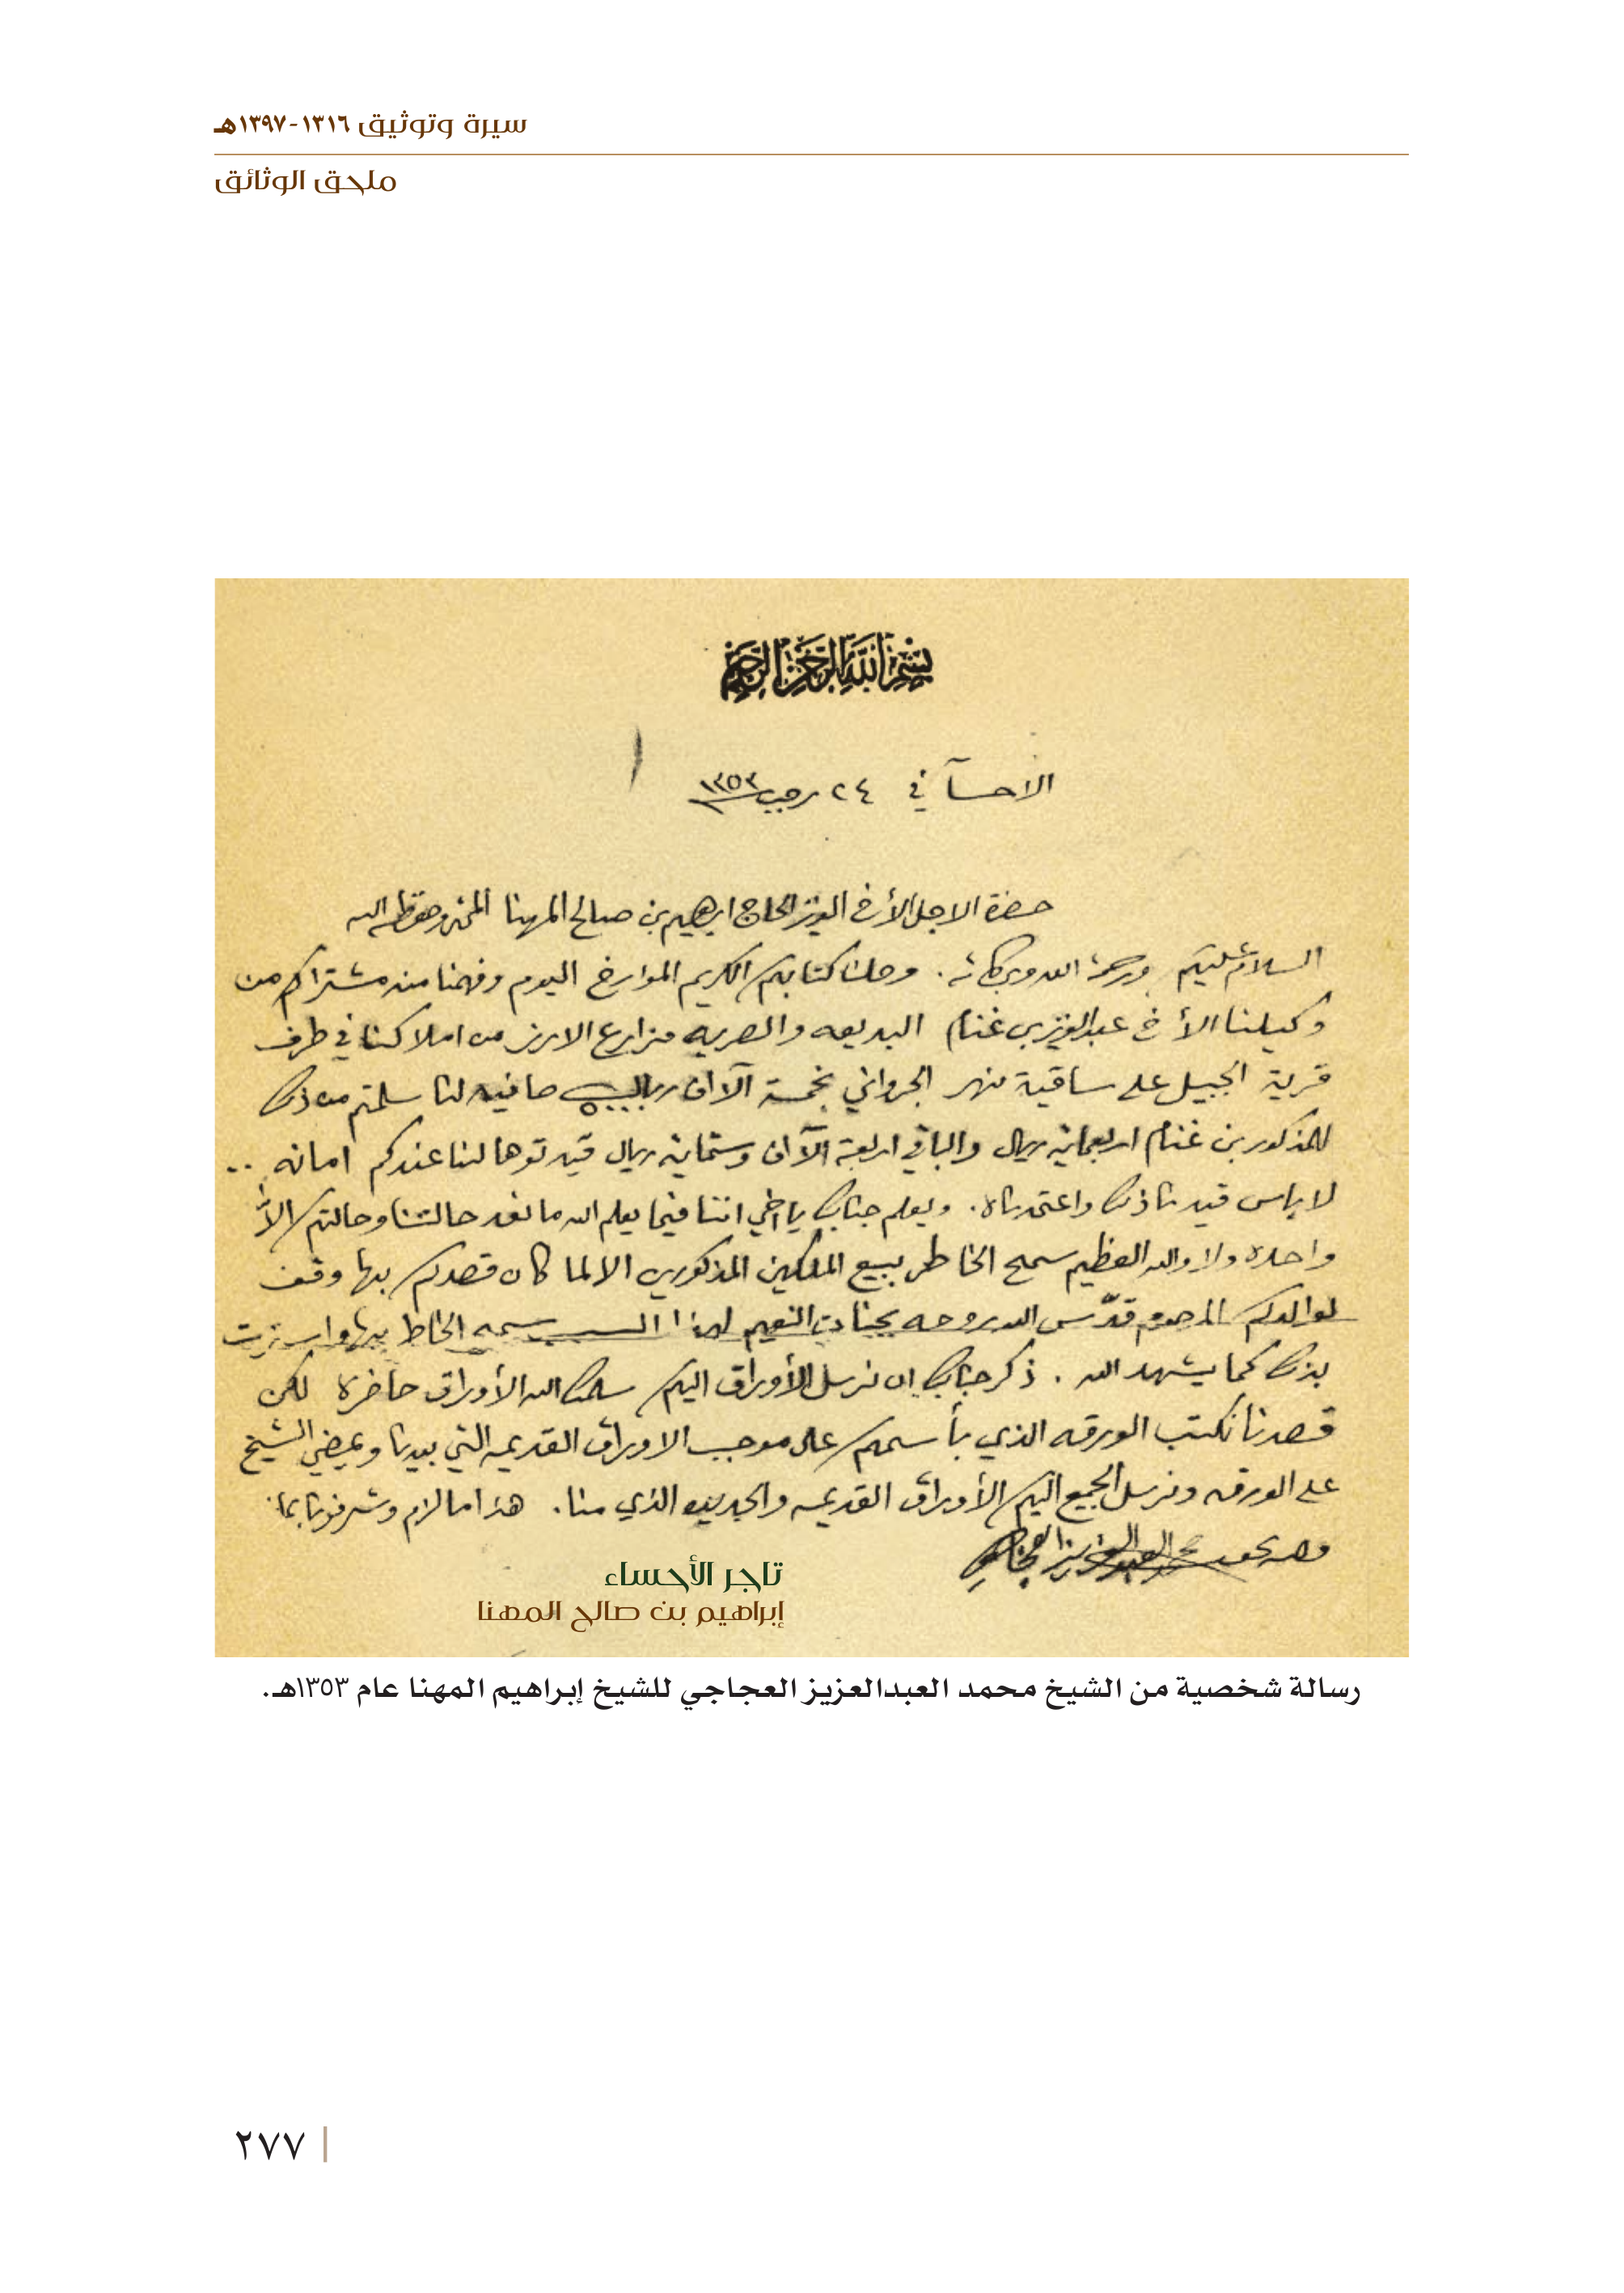 سيرة وتوثيق ١٣١٦-١٣٩٧هـ
ملحق الوثائق
بسم الله الرحمن الرحيم
الاحسآ في ٢٤ رجب ١٣٥٣
حضرة الاجل الأخ العزيز الحاج ابرهيم بن صالح المهنا المحترم حفظه الله
السلام عليكم ورحمة الله وبركاته . وصلنا كتابكم الكريم المؤرخ اليوم وفهمنا منه مشتراكم من
وكيلنا الأخ عبدالعزيز بن غنام البديعه والصريه مزارع الارز من املاكنا في طرف
قرية الجبيل على ساقية نهر الجرواني بخمسة آلاف ريال صافيه لنا سلمتم من ذلك
للمذكور بن غنام اربعماية ريال والباقي اربعة آلاف وستماية ريال قيدتوها لنا عندكم امانه ..
لا باس قيدنا ذلك واعتمدناه . ويعلم جنابك يا اخي اننا فيما يعلم الله ما نعد حالتنا وحالتكم الاّ
واحده ولا والله العظيم سمح الخاطر ببيع الملكين المذكورين الا لما كان قصدكم بها وقف
لوالدكم المرحوم قدّس الله روحه بجنات النعيم لهذا السبب سمح الخاطر بها
بذلك كما يشهد الله . ذكر جنابك ان نرسل الأوراق اليكم سلمك الله الأوراق حاضرة لكن
قصدنا نكتب الورقه الذي بأسمكم على موجب الاوراق القديمه التي بيدنا ويمضي الشيخ
على الورقه ونرسل الجميع اليكم الأوراق القديمه والجديده الذي منا . هذا ما لزم وشرفونا بما
محمد العبدالعزيز العجاجي
تاجر الأحساء
إبراهيم بن صالح المهنا
رسالة شخصية من الشيخ محمد العبدالعزيز العجاجي للشيخ إبراهيم المهنا عام ١٣٥٣هـ.
٢٧٧